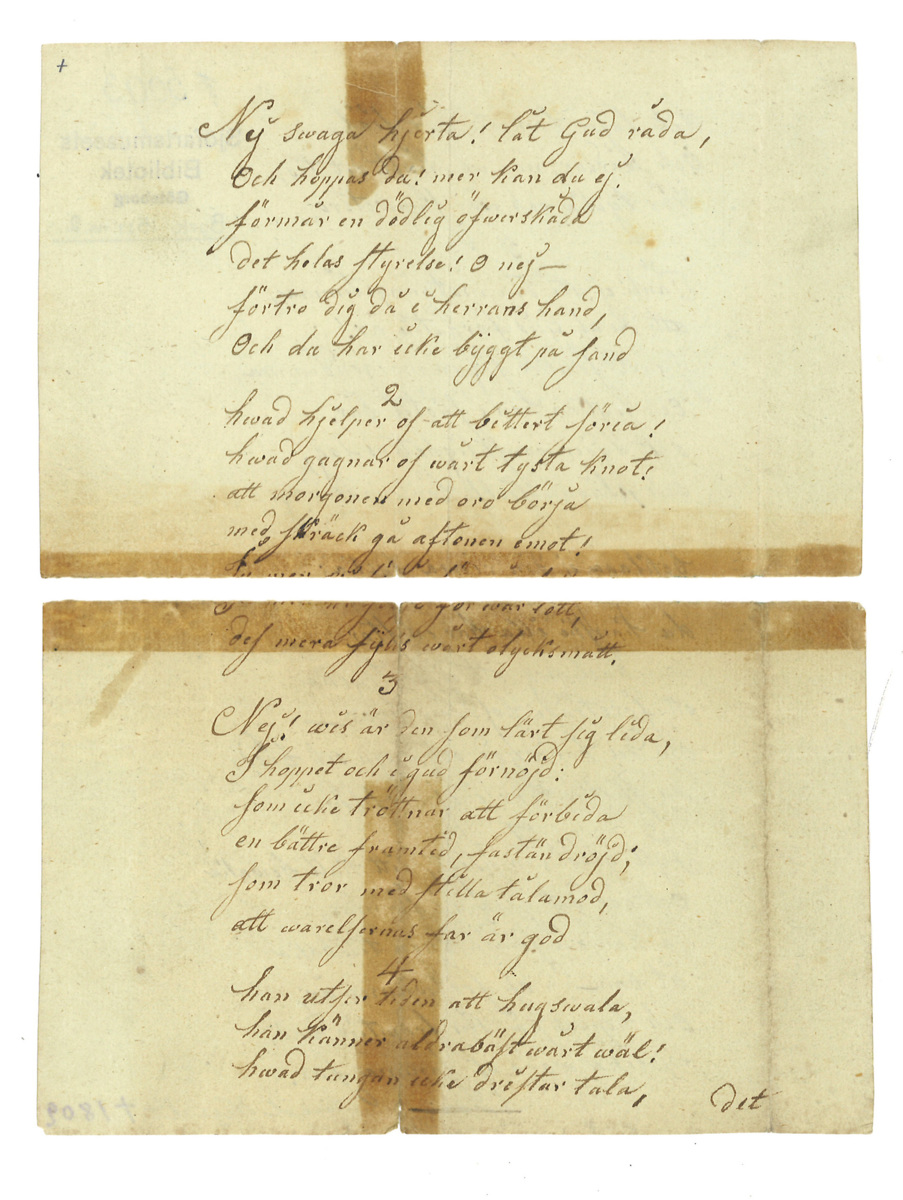 +
Nej swaga hjerta! låt Gud råda,
Och hoppas du! mer kan du ej.
förmår en dödlig öfwerskåda
det helas styrelse! O nej—
förtro dig då i herrans hand,
Och du har icke byggt på sand
2
hwad hjelper os att bittert sörja!
hwad gagnar os wårt tysta knot!
att morgonen med oro börja
med skräck gå aftonen emot!
gör wår lott,
des mera fylls wårt olycksmått.
3
Nej! wis är den som lärt sig lida,
I hoppet och i gud förnöjd:
som icke tröttnar att förbida
en bättre framtid, fastän dröjd;
som tror med stilla tålamod,
att warelsernas far är god
4
han utser tiden att hugswala,
han känner aldrabäst wårt wäl!
hwad tungan icke dristar tala,
det
Bibliotek
Göteborg
+1809